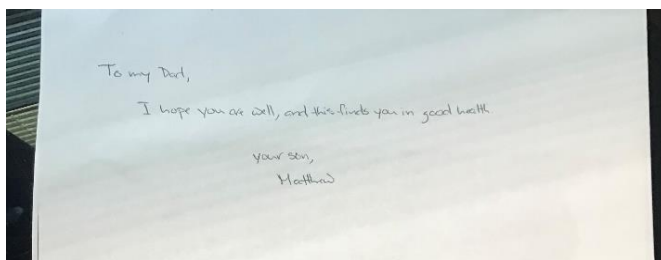 To my Dad,
I hope you are well, and this finds you in good health
your son,
Matthew